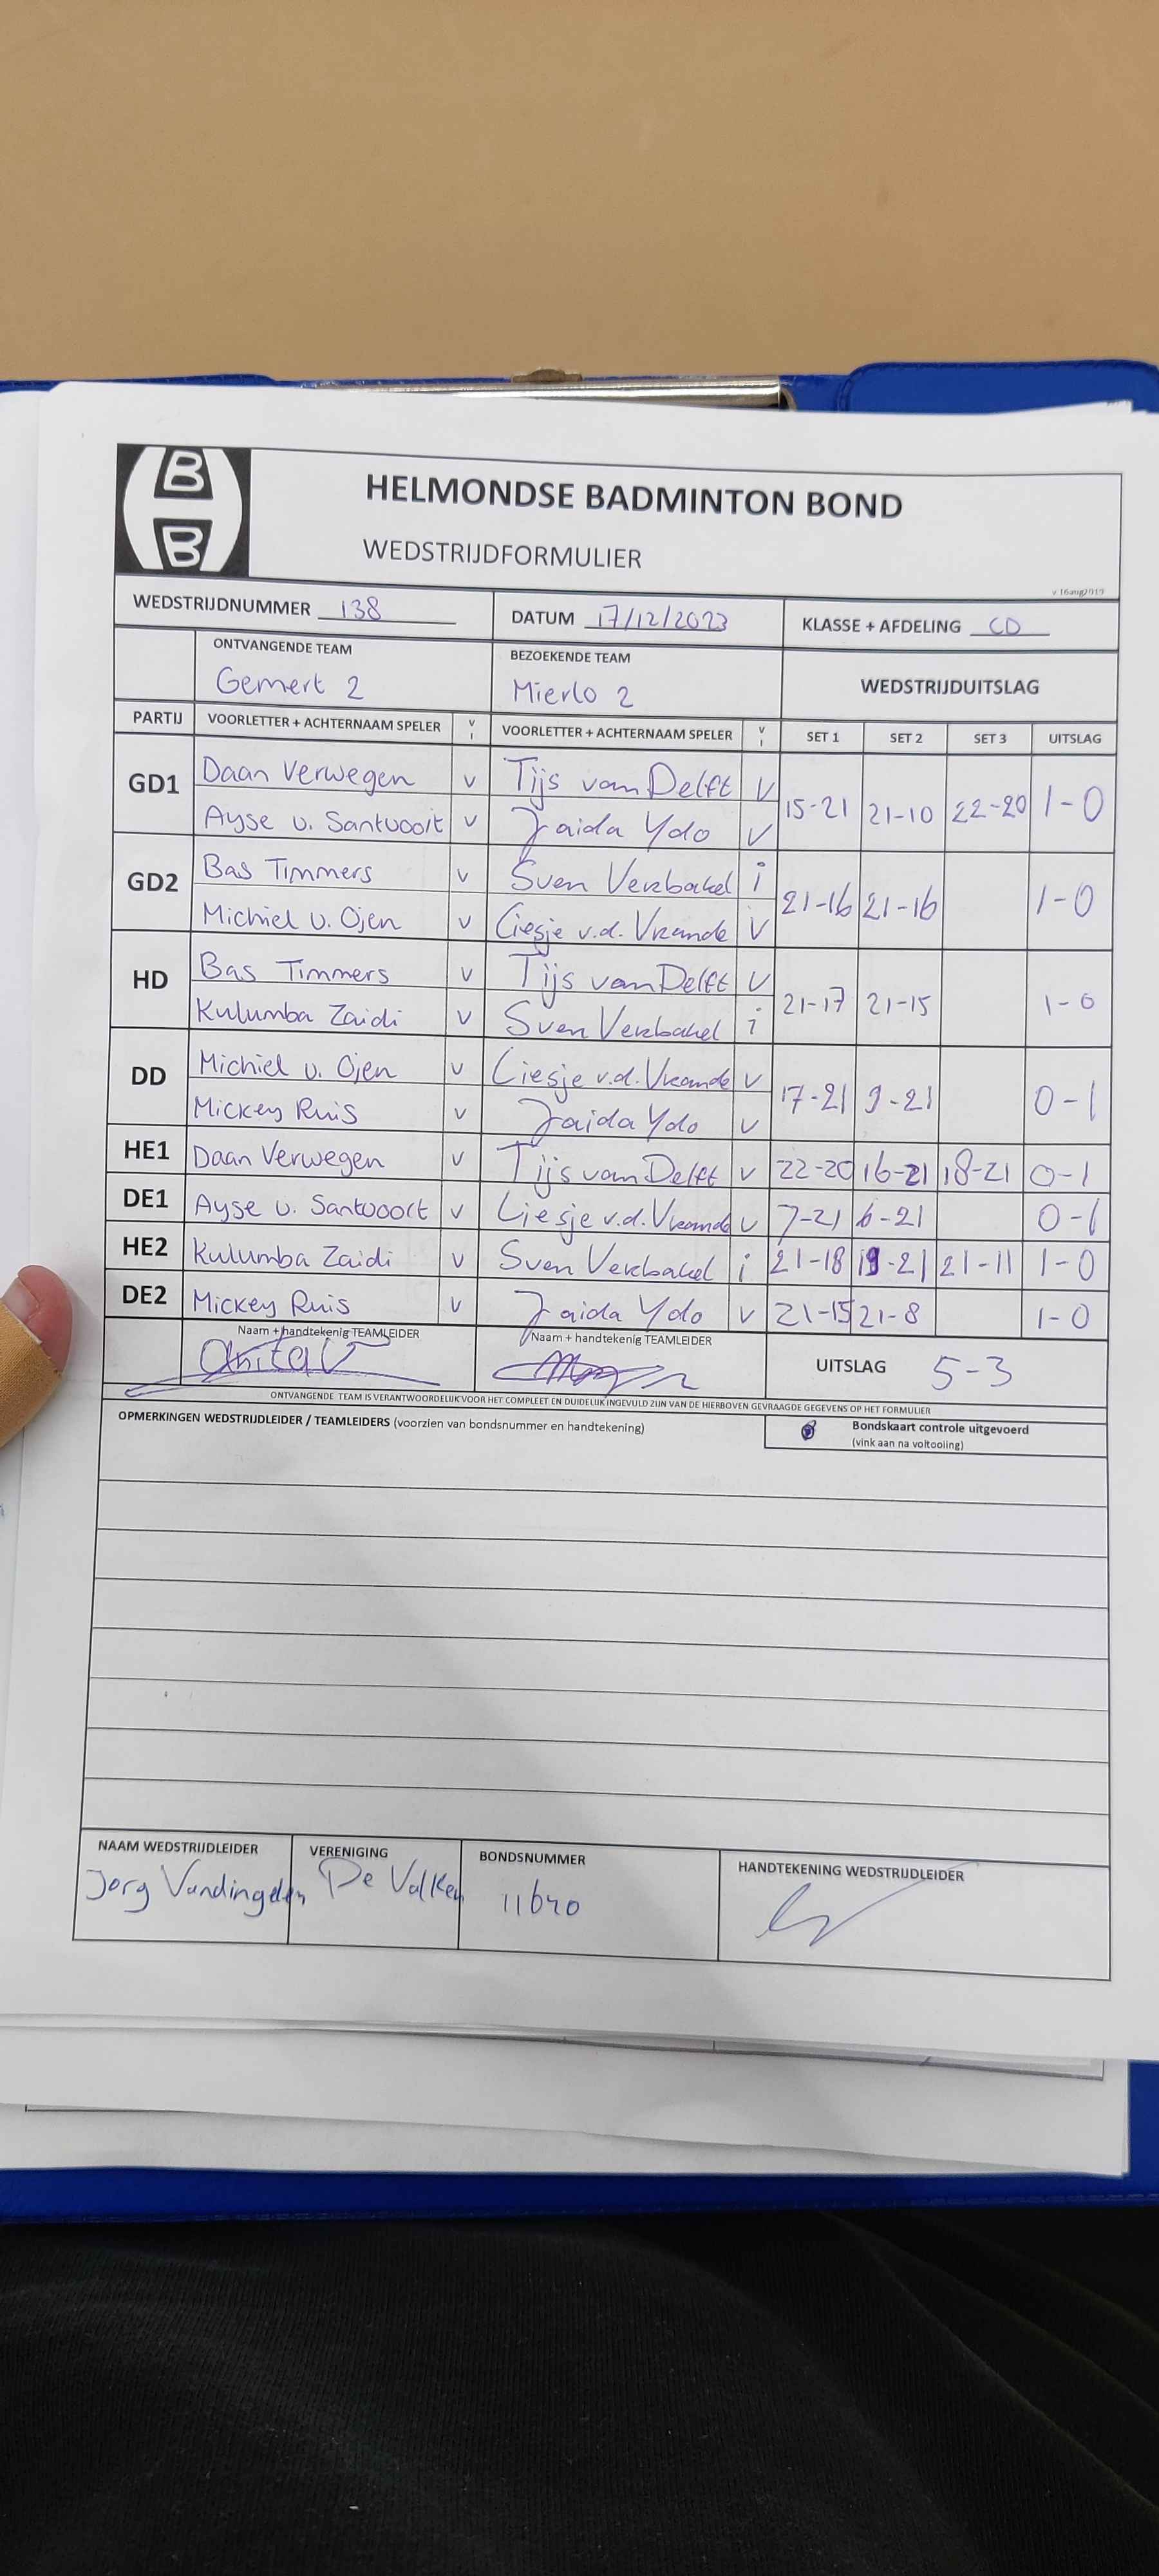 B
B
HELMONDSE BADMINTON BOND
WEDSTRIJDFORMULIER
v 16aug2019
WEDSTRIJDNUMMER 138 DATUM 17/12/2023 KLASSE + AFDELING CD
ONTVANGENDE TEAM BEZOEKENDE TEAM
Gemert 2 Mierlo 2 WEDSTRIJDUITSLAG
PARTIJ VOORLETTER + ACHTERNAAM SPELER V I VOORLETTER + ACHTERNAAM SPELER V I SET 1 SET 2 SET 3 UITSLAG
GD1 Daan Verwegen v Tijs van Delft v 15-21 21-10 22-20 1-0
Ayse v. Santvoort v Jaida Ydo v
GD2 Bas Timmers v Sven Verbakel i 21-16 21-16 1-0
Michiel v. Ojen v Liesje v.d. Vrande v
HD Bas Timmers v Tijs van Delft v 21-17 21-15 1-0
Kulumba Zaidi v Sven Verbakel i
DD Michiel v. Ojen v Liesje v.d. Vrande v 17-21 9-21 0-1
Mickey Ruis v Jaida Ydo v
HE1 Daan Verwegen v Tijs van Delft v 22-20 16-21 18-21 0-1
DE1 Ayse v. Santvoort v Liesje v.d. Vrande v 7-21 6-21 0-1
HE2 Kulumba Zaidi v Sven Verbakel i 21-18 19-21 21-11 1-0
DE2 Mickey Ruis v Jaida Ydo v 21-15 21-8 1-0
Naam + handtekenig TEAMLEIDER Naam + handtekenig TEAMLEIDER
Anita V UITSLAG 5-3
ONTVANGENDE TEAM IS VERANTWOORDELIJK VOOR HET COMPLEET EN DUIDELIJK INGEVULD ZIJN VAN DE HIERBOVEN GEVRAAGDE GEGEVENS OP HET FORMULIER
OPMERKINGEN WEDSTRIJDLEIDER / TEAMLEIDERS (voorzien van bondsnummer en handtekening) Bondskaart controle uitgevoerd
(vink aan na voltooiing)
NAAM WEDSTRIJDLEIDER VERENIGING BONDSNUMMER HANDTEKENING WEDSTRIJDLEIDER
Jorg De Valken 11640